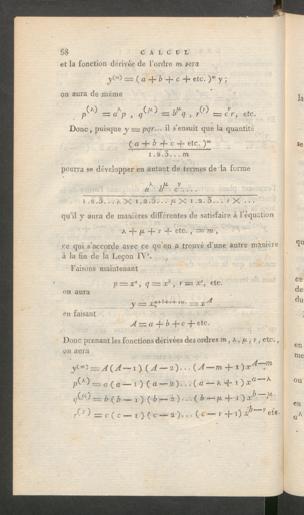 58 CALCUL
et la fonction dérivée de l'ordre m sera
y⁽ᵐ⁾ = (a + b + c + etc.)ᵐ y;
on aura de même
p^(λ) = a^λ p, q^(μ) = b^μ q, r^(ν) = c^ν r, etc.
Donc, puisque y = pqr... il s'ensuit que la quantité
(a + b + c + etc.)ᵐ
1.2.3...m
pourra se développer en autant de termes de la forme
a^λ b^μ c^ν ....
1.2.3...λ × 1.2.3...μ × 1.2.3...ν × ...
qu'il y aura de manières différentes de satisfaire à l'équation
λ + μ + ν + etc., = m,
ce qui s'accorde avec ce qu'on a trouvé d'une autre manière
à la fin de la Leçon IVᵉ.
Faisons maintenant
p = xᵃ, q = xᵇ, r = xᶜ, etc.
on aura
y = x^(a+b+c+etc.) = x^A
en faisant
A = a + b + c + etc.
Donc prenant les fonctions dérivées des ordres m, λ, μ, ν, etc.,
on aura
y⁽ᵐ⁾ = A (A − 1) (A − 2) ... (A − m + 1) x^A−m
p^(λ) = a (a − 1) (a − 2) ... (a − λ + 1) x^a−λ
q^(μ) = b (b − 1) (b − 2) ... (b − μ + 1) x^b−μ
r^(ν) = c (c − 1) (c − 2) ... (c − ν + 1) x^b−ν etc.